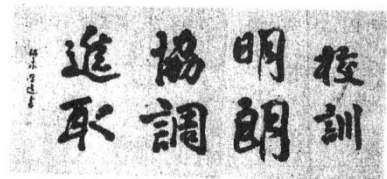 校訓
明朗
協調
進取